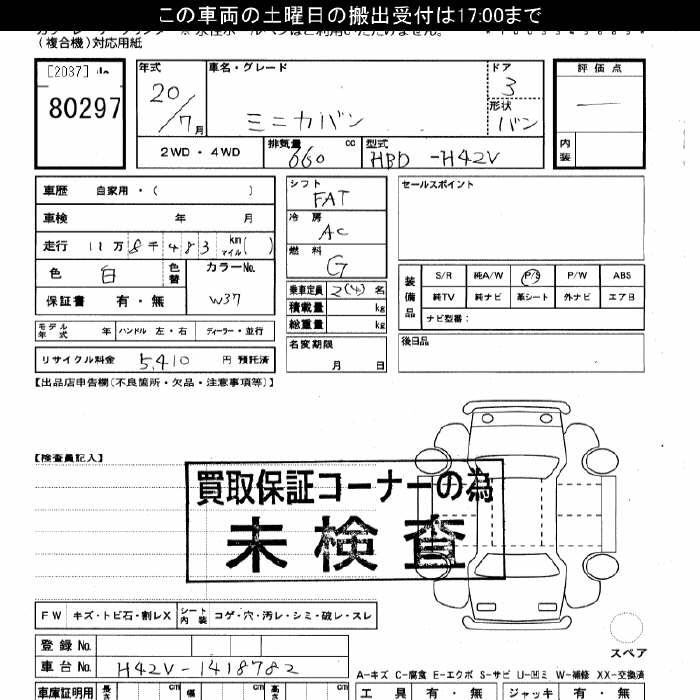 この車両の土曜日の搬出受付は17:00まで
(複合機)対応用紙
[2037]
80297
年式
20/7 月
車名・グレード
ミニカバン
ドア
3
形状
バン
評価点
内装
2WD・4WD
排気量 660 cc
型式 HBD-H42V
車歴 自家用・( )
車検 年 月
走行 11万8千483 km マイル( )
色 白 色替 カラーNo. W37
保証書 有・無
モデル年式 年 ハンドル 左・右 ディーラー・並行
リサイクル料金 5,410 円 預託済
シフト FAT
冷房 AC
燃料 G
乗車定員 2(4) 名
積載量 kg
総重量 kg
名変期限
月 日
セールスポイント
装備品
S/R 純A/W P/S P/W ABS
純TV 純ナビ 革シート 外ナビ エアB
ナビ型番:
後日品
【出品店申告欄(不良箇所・欠品・注意事項等)】
【検査員記入】
買取保証コーナーの為
未検査
FW キズ・トビ石・割レX シート内装 コゲ・穴・汚レ・シミ・破レ・スレ
スペア
登録No.
車台No. H42V-1418782
A-キズ C-腐食 E-エクボ S-サビ U-凹ミ W-補修 XX-交換済
車庫証明用 長さ cm 幅 cm 高さ cm
工具 有・無 ジャッキ 有・無